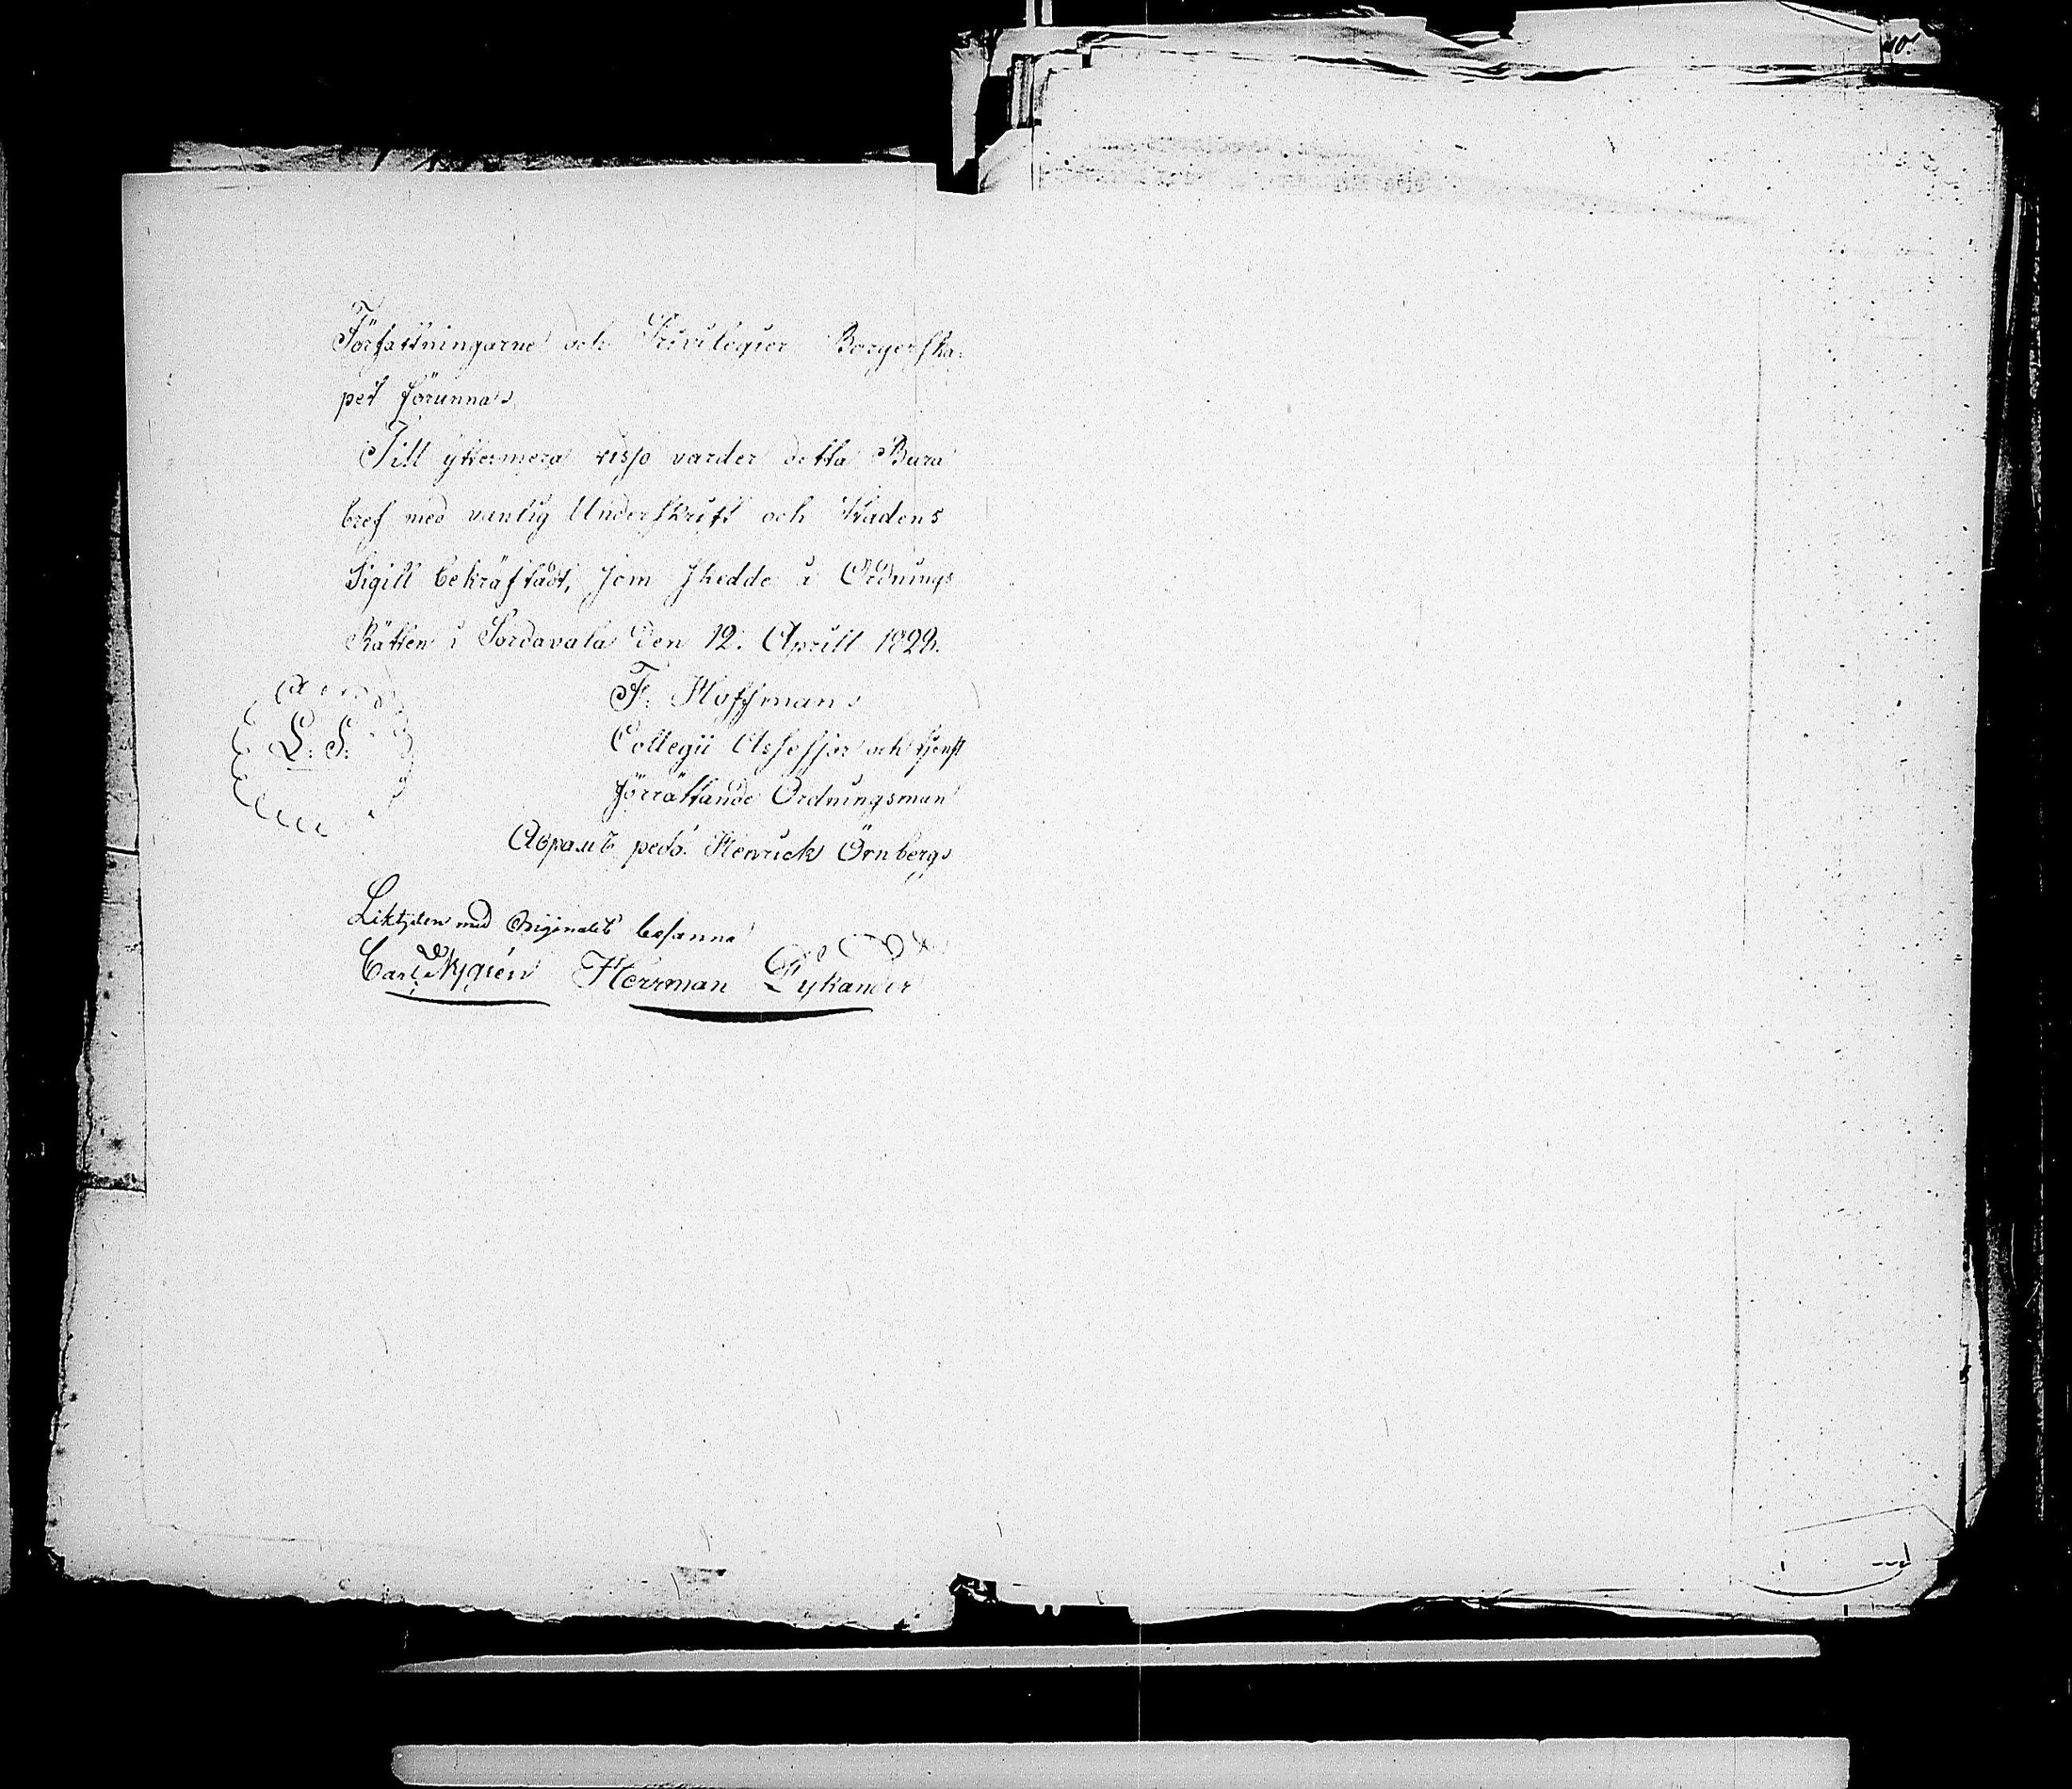 40.
Författningarne och Privilegier Borgerska-
pet förunnas
Till yttermera visso varder detta Burs
bref med vanlig Underskrift och Stadens
Sigill bekräftadt, som skedde i Ordnings
Rätten i Sordavala den 12. Aprill 1829.
F. Hoffman
L. S.
Collegii Assessor och tjenst
förrättande Ordningsman
Henrick Örnberg
Liktyden med Originalet besanna
Carl Herrman Lykander